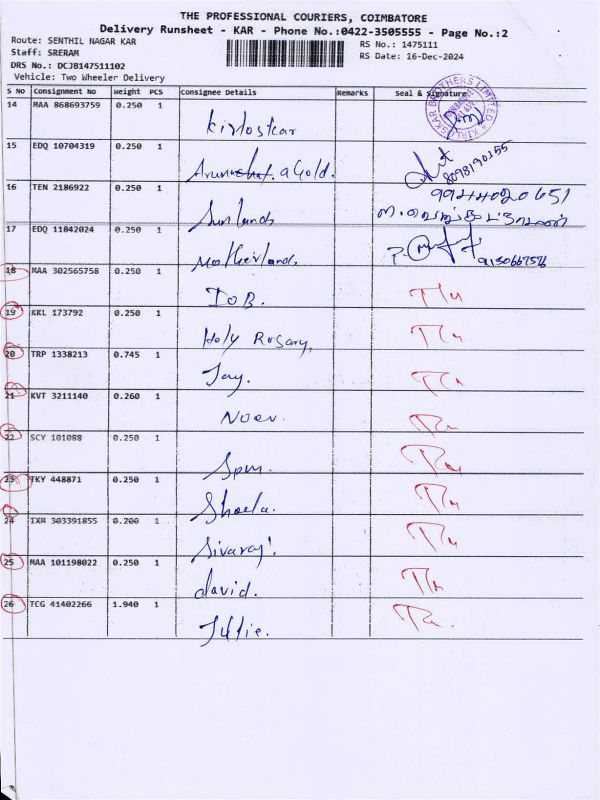 THE PROFESSIONAL COURIERS, COIMBATORE
Delivery Runsheet - KAR - Phone No.:0422-3505555 - Page No.:2
Route: SENTHIL NAGAR KAR
RS No.: 1475111
Staff: SRERAM
RS Date: 16-Dec-2024
DRS No.: DCJB147511102
Vehicle: Two Wheeler Delivery
S No Consignment No Weight PCS Consignee Details Remarks Seal & Signature
14 MAA 868693759 0.250 1 Kirloskar
15 EDQ 10704319 0.250 1 Gold. 8098190255
16 TEN 2186922 0.250 1 Sunlands
17 EDQ 11842024 0.250 1 Motherland.
18 MAA 302565758 0.250 1 IOB.
19 KKL 173792 0.250 1 Holy Rosary,
20 TRP 1338213 0.745 1 Jay.
21 KVT 3211140 0.260 1
22 SCY 101088 0.250 1 Spm.
23 TKY 448871 0.250 1 Sheela.
24 IXM 303391855 0.200 1 Sivaraj.
25 MAA 101198022 0.250 1 david.
26 TCG 41402266 1.940 1 Julie.